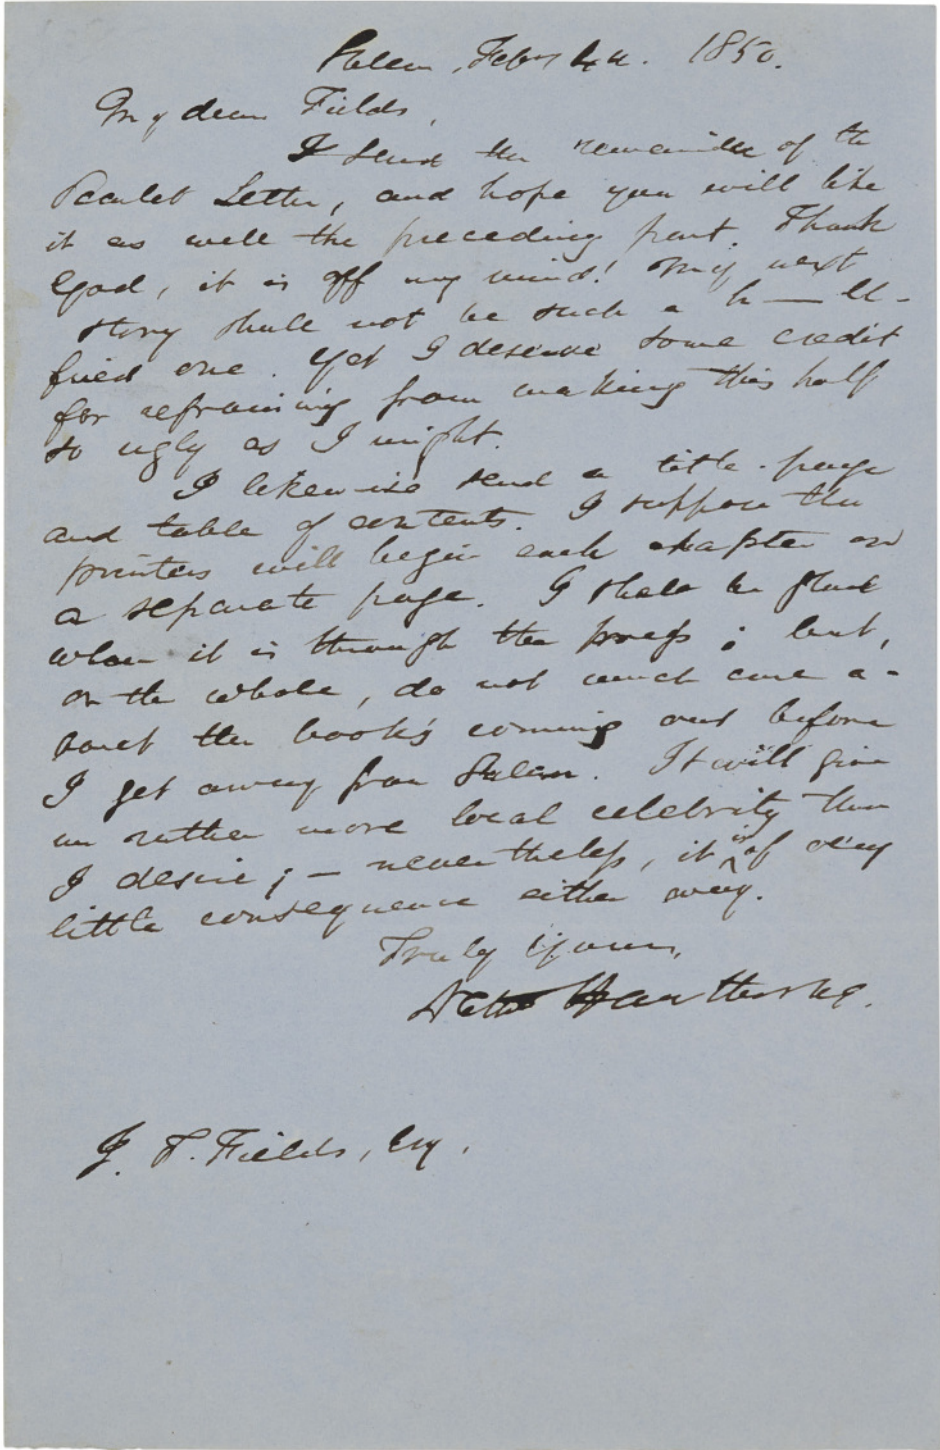 Salem, Feby 4th. 1850.
My dear Fields,
I send the remainder of the
Scarlet Letter, and hope you will like
it as well the preceding part. Thank
God, it is off my mind! My next
story shall not be such a h—ll-
fired one. Yet I deserve some credit
for refraining from making this half
so ugly as I might.
I likewise send a title-page
and table of contents. I suppose the
printers will begin each chapter on
a separate page. I shall be glad
when it is through the press; but,
on the whole, do not much care a-
bout the book's coming out before
I get away from Salem. It will give
me rather more local celebrity than
I desire;— nevertheless, it is of very
little consequence either way.
Truly Yours,
Nath Hawthorne.
J. T. Fields, Esq.